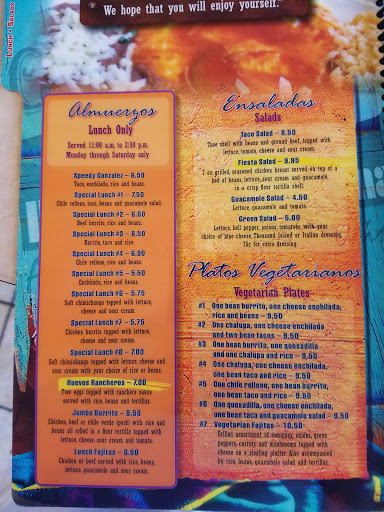 We hope that you will enjoy yourself."
Lunch • Salads
Almuerzos
Lunch Only
Served 11:00 a.m. to 2:30 p.m.
Monday through Saturday only
Speedy Gonzalez – 6.50
Taco, enchilada, rice and beans.
Special Lunch #1 – 7.50
Chile relleno, taco, beans and guacamole salad.
Special Lunch #2 – 6.00
Beef burrito, rice and beans.
Special Lunch #3 – 6.50
Burrito, taco and rice.
Special Lunch #4 – 6.00
Chile relleno, rice and beans.
Special Lunch #5 – 5.50
Enchilada, rice and beans.
Special Lunch #6 – 5.75
Soft chimichanga topped with lettuce,
cheese and sour cream.
Special Lunch #7 – 5.75
Chicken burrito topped with lettuce,
cheese and sour cream.
Special Lunch #8 – 7.00
Soft chimichanga topped with lettuce, cheese and
sour cream with your choice of rice or beans.
Huevos Rancheros – 7.00
Two eggs topped with ranchero sauce
served with rice, beans and tortillas.
Jumbo Burrito – 9.50
Chicken, beef or chile verde (pork) with rice and
beans all rolled in a flour tortilla topped with
lettuce, cheese, sour cream and tomato.
Lunch Fajitas – 8.50
Chicken or beef served with rice, beans,
lettuce, guacamole and sour cream.
Ensaladas
Salads
Taco Salad – 8.50
Taco shell with beans and ground beef, topped with
lettuce, tomato, cheese and sour cream.
Fiesta Salad – 9.95
7 oz. grilled, seasoned chicken breast served on top of a
bed of beans, lettuce, sour cream and guacamole,
in a crisp flour tortilla shell.
Guacamole Salad – 4.50
Lettuce, guacamole and tomato.
Green Salad – 5.00
Lettuce, bell pepper, onions, tomatoes, with your
choice of blue cheese, Thousand Island or Italian dressing.
75¢ for extra dressing.
Platos Vegetarianos
Vegetarian Plates
#1 One bean burrito, one cheese enchilada,
rice and beans – 9.50
#2 One chalupa, one cheese enchilada
and two bean tacos – 9.50
#3 One bean burrito, one quesadilla
and one chalupa and rice – 9.50
#4 One chalupa, one cheese enchilada,
one bean taco and rice – 9.50
#5 One chile relleno, one bean burrito,
one bean taco and rice – 9.50
#6 One quesadilla, one cheese enchilada,
one bean taco and guacamole salad – 9.50
#7 Vegetarian Fajitas – 10.50
Grilled assortment of tomatoes, onions, green
peppers, carrots and mushrooms topped with
cheese on a sizzling platter. Also accompanied
by rice, beans, guacamole salad and tortillas.